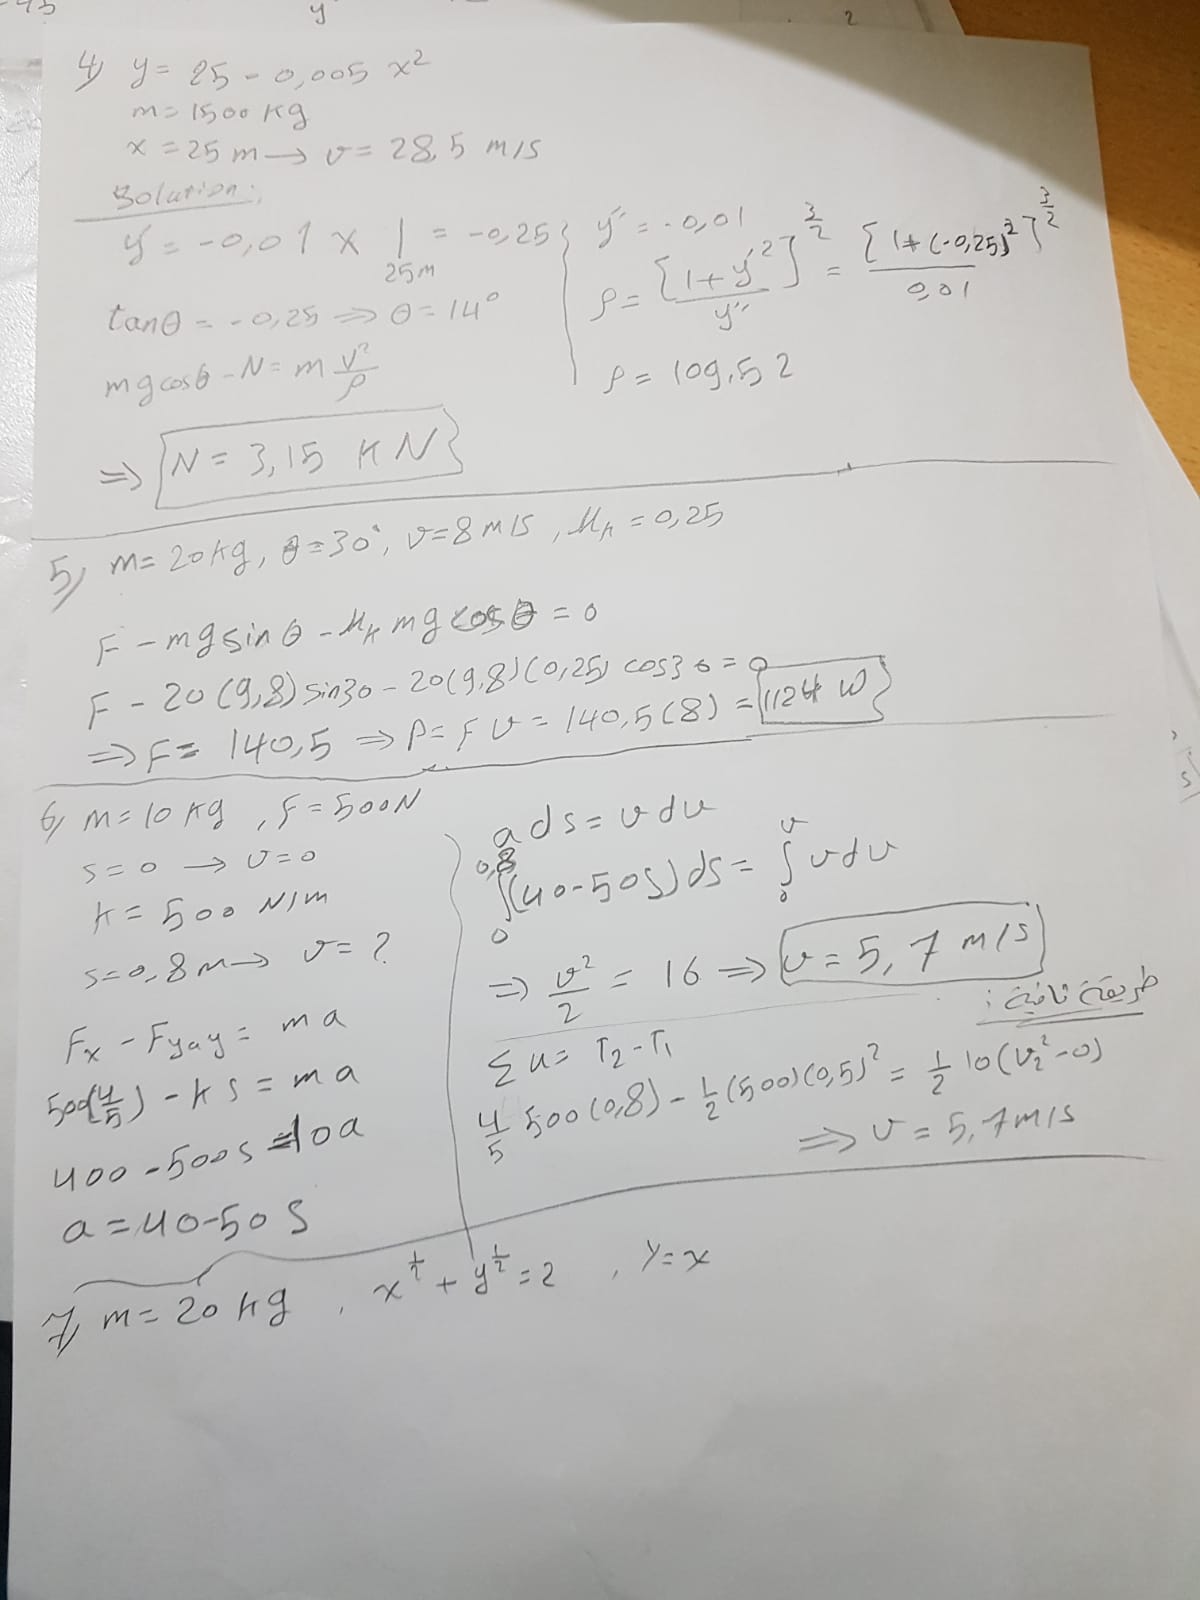 y
2
4) y = 25 - 0,005 x²
m = 1500 kg
x = 25 m → v = 28,5 m/s
Solution:
y' = -0,01 x | 25m = -0,25
tanθ = -0,25 ⇒ θ = 14°
mg cosθ - N = m v²/ρ
⇒ N = 3,15 KN
y'' = -0,01
ρ = [1 + y'²]^(3/2) / y'' = [1 + (-0,25)²]^(3/2) / 0,01
ρ = 109,52
5) m = 20 kg, θ = 30°, v = 8 m/s, μk = 0,25
F - mg sin θ - μk mg cos θ = 0
F - 20 (9,8) sin30 - 20(9,8)(0,25) cos30 = 0
⇒ F = 140,5 ⇒ P = F v = 140,5 (8) = 1124 W
6) m = 10 kg, F = 500N
s = 0 → v = 0
k = 500 N/m
s = 0,8 m → v = ?
Fx - Fyay = ma
500(4/5) - k s = ma
400 - 500 s = 10a
a = 40 - 50 S
a ds = v dv
∫₀^0,8 (40 - 50s) ds = ∫₀^v v dv
⇒ v²/2 = 16 ⇒ v = 5,7 m/s
طريقة ثانية :
Σ u = T₂ - T₁
4/5 500 (0,8) - 1/2 (500) (0,5)² = 1/2 10 (v₂² - 0)
⇒ v = 5,7 m/s
7) m = 20 kg, x^(1/2) + y^(1/2) = 2, y = x